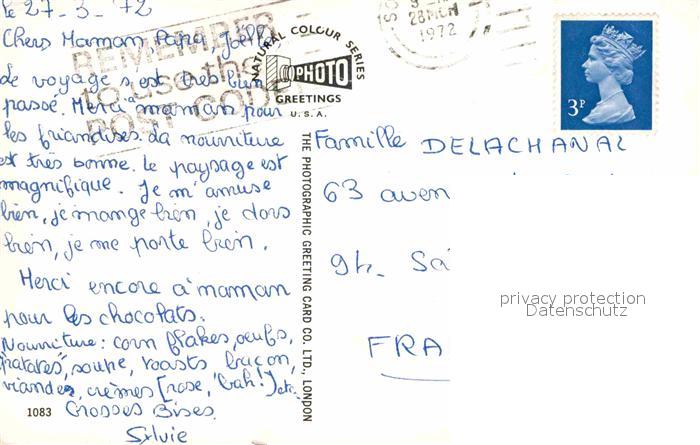 le 27-3-72
Chers Maman Papa, Joëlle
Le voyage s'est très bien
passé. Merci à maman pour
les friandises. La nourriture
est très bonne. Le paysage est
magnifique. Je m'amuse
bien, je mange bien, je dors
bien, je me porte bien.
Merci encore à maman
pour les chocolats.
Nourriture: corn flakes, oeufs,
"patates", soupe, roasts bacon,
viandes, crèmes [rose, "bah!"] etc.
Grosses Bises.
Sylvie
1083
REMEMBER
to use the
POST CODE
NATURAL COLOUR SERIES
PHOTO
GREETINGS
U.S.A.
THE PHOTOGRAPHIC GREETING CARD CO. LTD., LONDON
28 MCH
1972
3P
Famille DELACHANAL
63 aven
94. Sai
FRA
privacy protection
Datenschutz